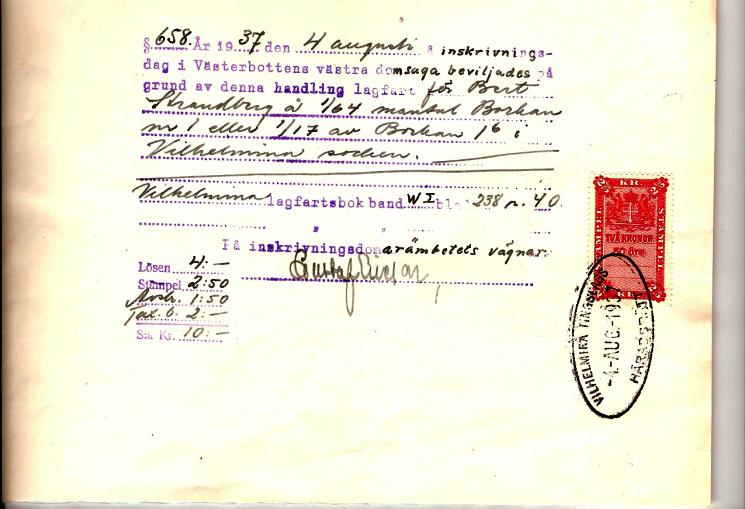 § 658. År 1937 den 4 augusti å inskrivnings-
dag i Västerbottens västra domsaga beviljades på
grund av denna handling lagfart för Bert
Strandberg å 1/64 mantal Borkan
nr 1 eller 1/17 av Borkan 1 6 i
Vilhelmina socken.
Vilhelmina lagfartsbok band W I bl 238 n. 40.
" "
På inskrivningsdomarämbetets vägnar:
Gustaf
Lösen 4:-
Stämpel 2:50
Avskr. 1:50
Tax.b. 2:-
S:a Kr. 10:-
2 KR. 2
STÄMPEL STÄMPEL
TVÅ KRONOR
50 öre
KR.
VILHELMINA TINGSLAGS
-4-AUG.-193
HÄRADSRÄTT